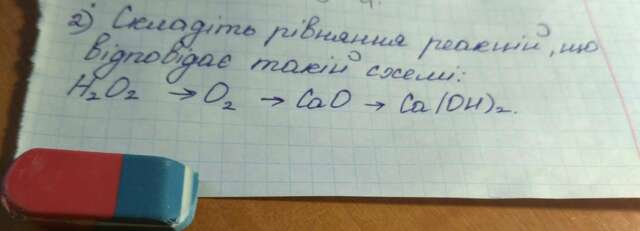 2) Складіть рівняння реакцій, що
відповідає такій схемі:
H₂O₂ → O₂ → CaO → Ca(OH)₂.